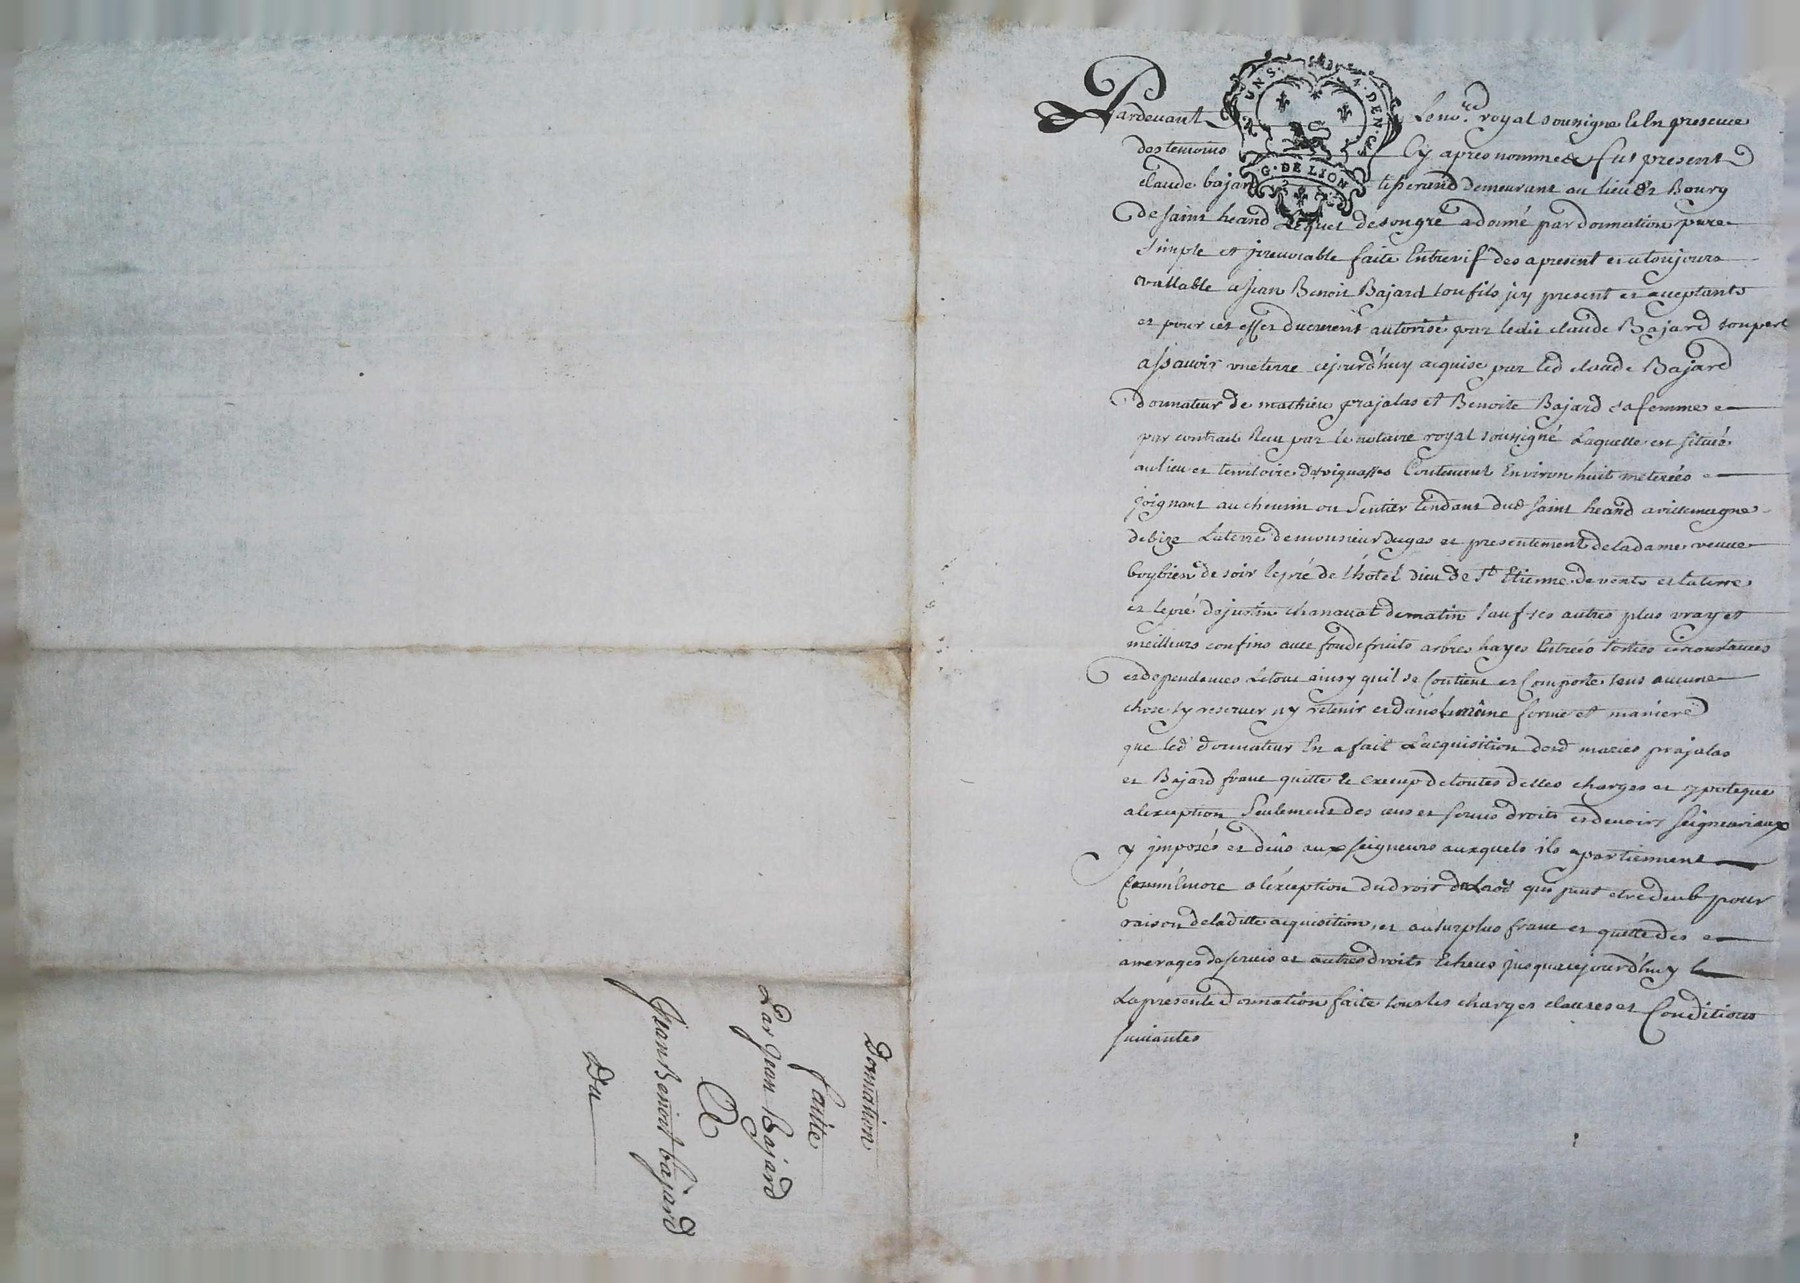 Pardevant Le no.re royal soussigné Et En presence
des temoins Cy apres nommés fut present
claude bajard tisserand demeurant au lieu et Bourg
de saint heand Lequel de son gré a donné par donnation pure
simple et jrrevocable faite Entrevif des apresent et a toujours
vallable a Jean Benoit Bajard son fils jcy present et acceptants
et pour cet effet duement autorisé par ledit claude Bajard son pere
assavoir une terre cejourd'huy acquise par led claude Bajard
donnateur de mathieu prajalas et Benoite Bajard sa femme
par contrait Reçu par le notaire royal soussigné Laquelle est située
au lieu et territoire Contenant Environ huit meterées
joignant au chemin ou Sentier tendant dud saint heand a villemagne
de bize La terre de monsieur dugas et presentement de la dame veuve
de soir le pré de l'hotel dieu de St Etienne de vent et la terre
et le pré de justin chanavat de matin sauf ses autres plus vrays et
meilleurs confins avec fond fruits arbres hayes Entrées sorties circonstances
et dependences Le tout ainsy qu'il se Contient et Comporte sans aucune
chose sy reserver ny retenir et dans la même forme et maniere
que led donnateur En a fait L'acquisition desd mariés prajalas
et Bajard franc quitte et Exemp de toutes dettes charges et ypoteque
a l'exception Seulement des cens et servis droits et devoirs seigneuriaux
y jmposés et deüs aux seigneurs auxquels ils apartiennent
Comm'Encore a l'exception du droit de Laod qui peut etre deub pour
raison de laditte acquisition, et au surplus franc et quitte des
arrerages de servis et autres droits Echeus jusqua cejourd'huy
La presente Donnation faite sous les charges clauses et Conditions
suivantes
G. DE LION
Donnation
faite
Par Jean Bajard
A
Jean Benoit bajard
Du